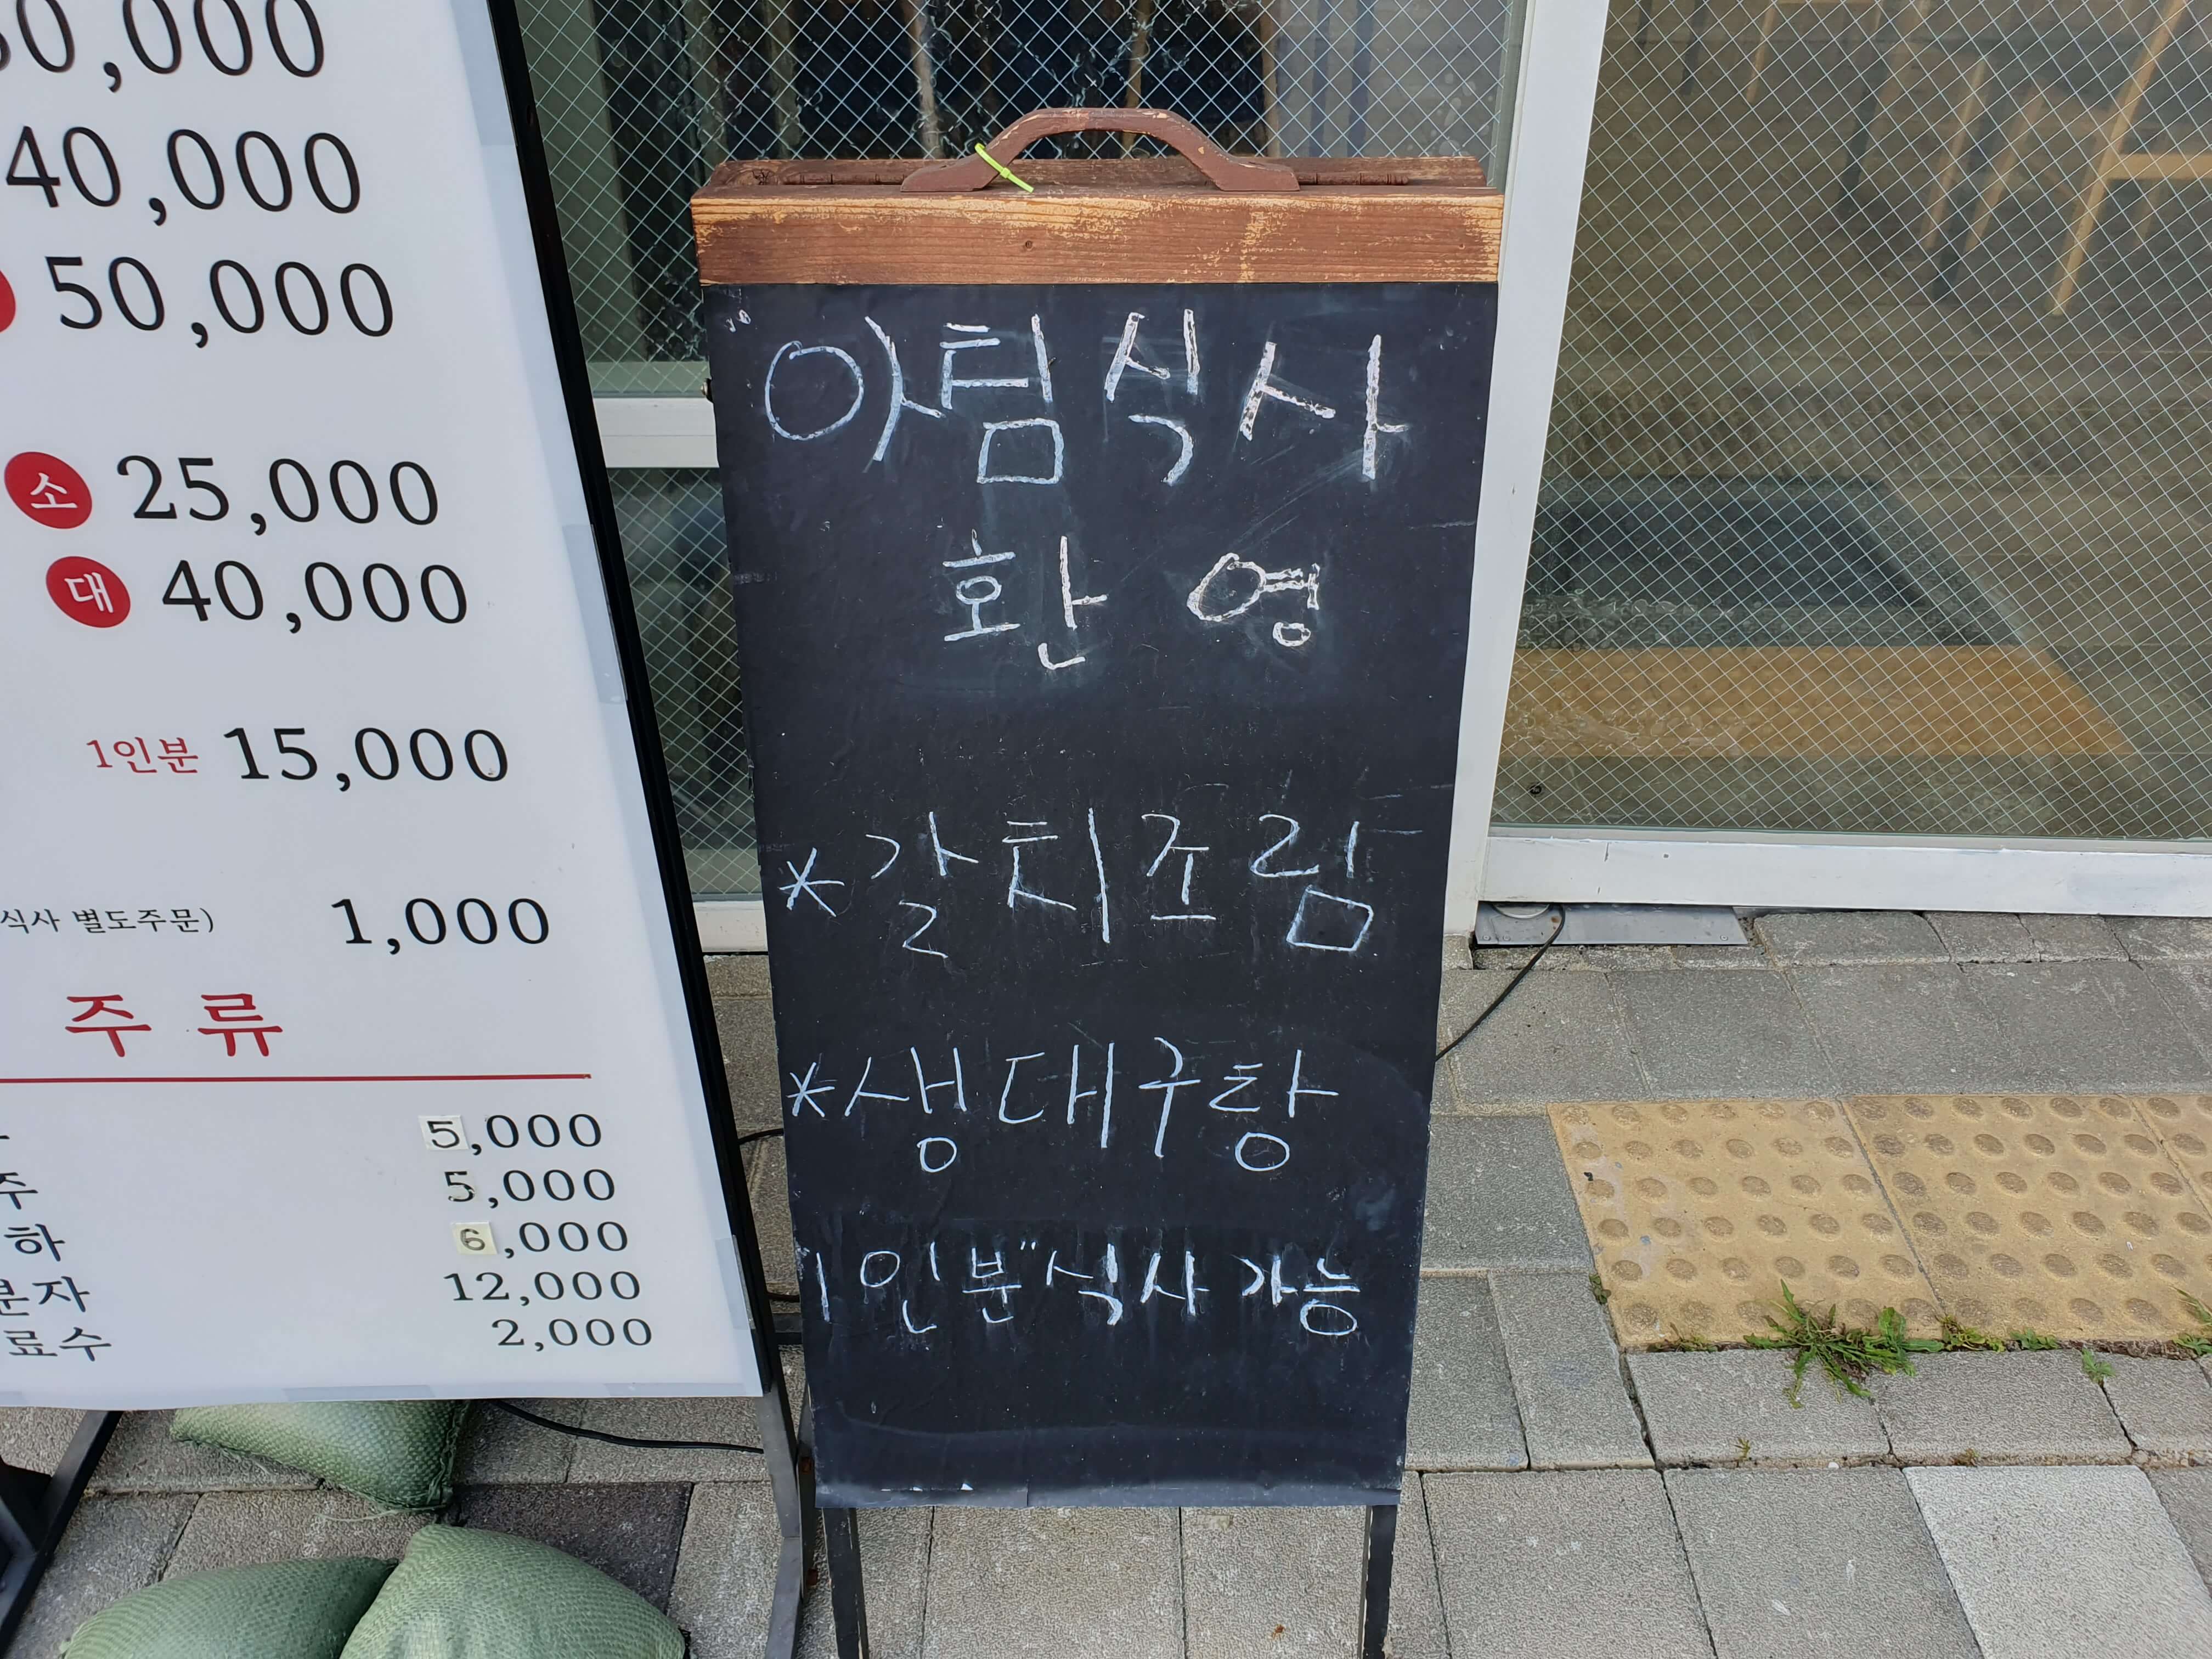 40,000
50,000
소 25,000
대 40,000
1인분 15,000
식사 별도주문) 1,000
주 류
5,000
5,000
6,000
12,000
2,000
아침식사
환 영
*갈치조림
*생대구탕
1인분"식사가능